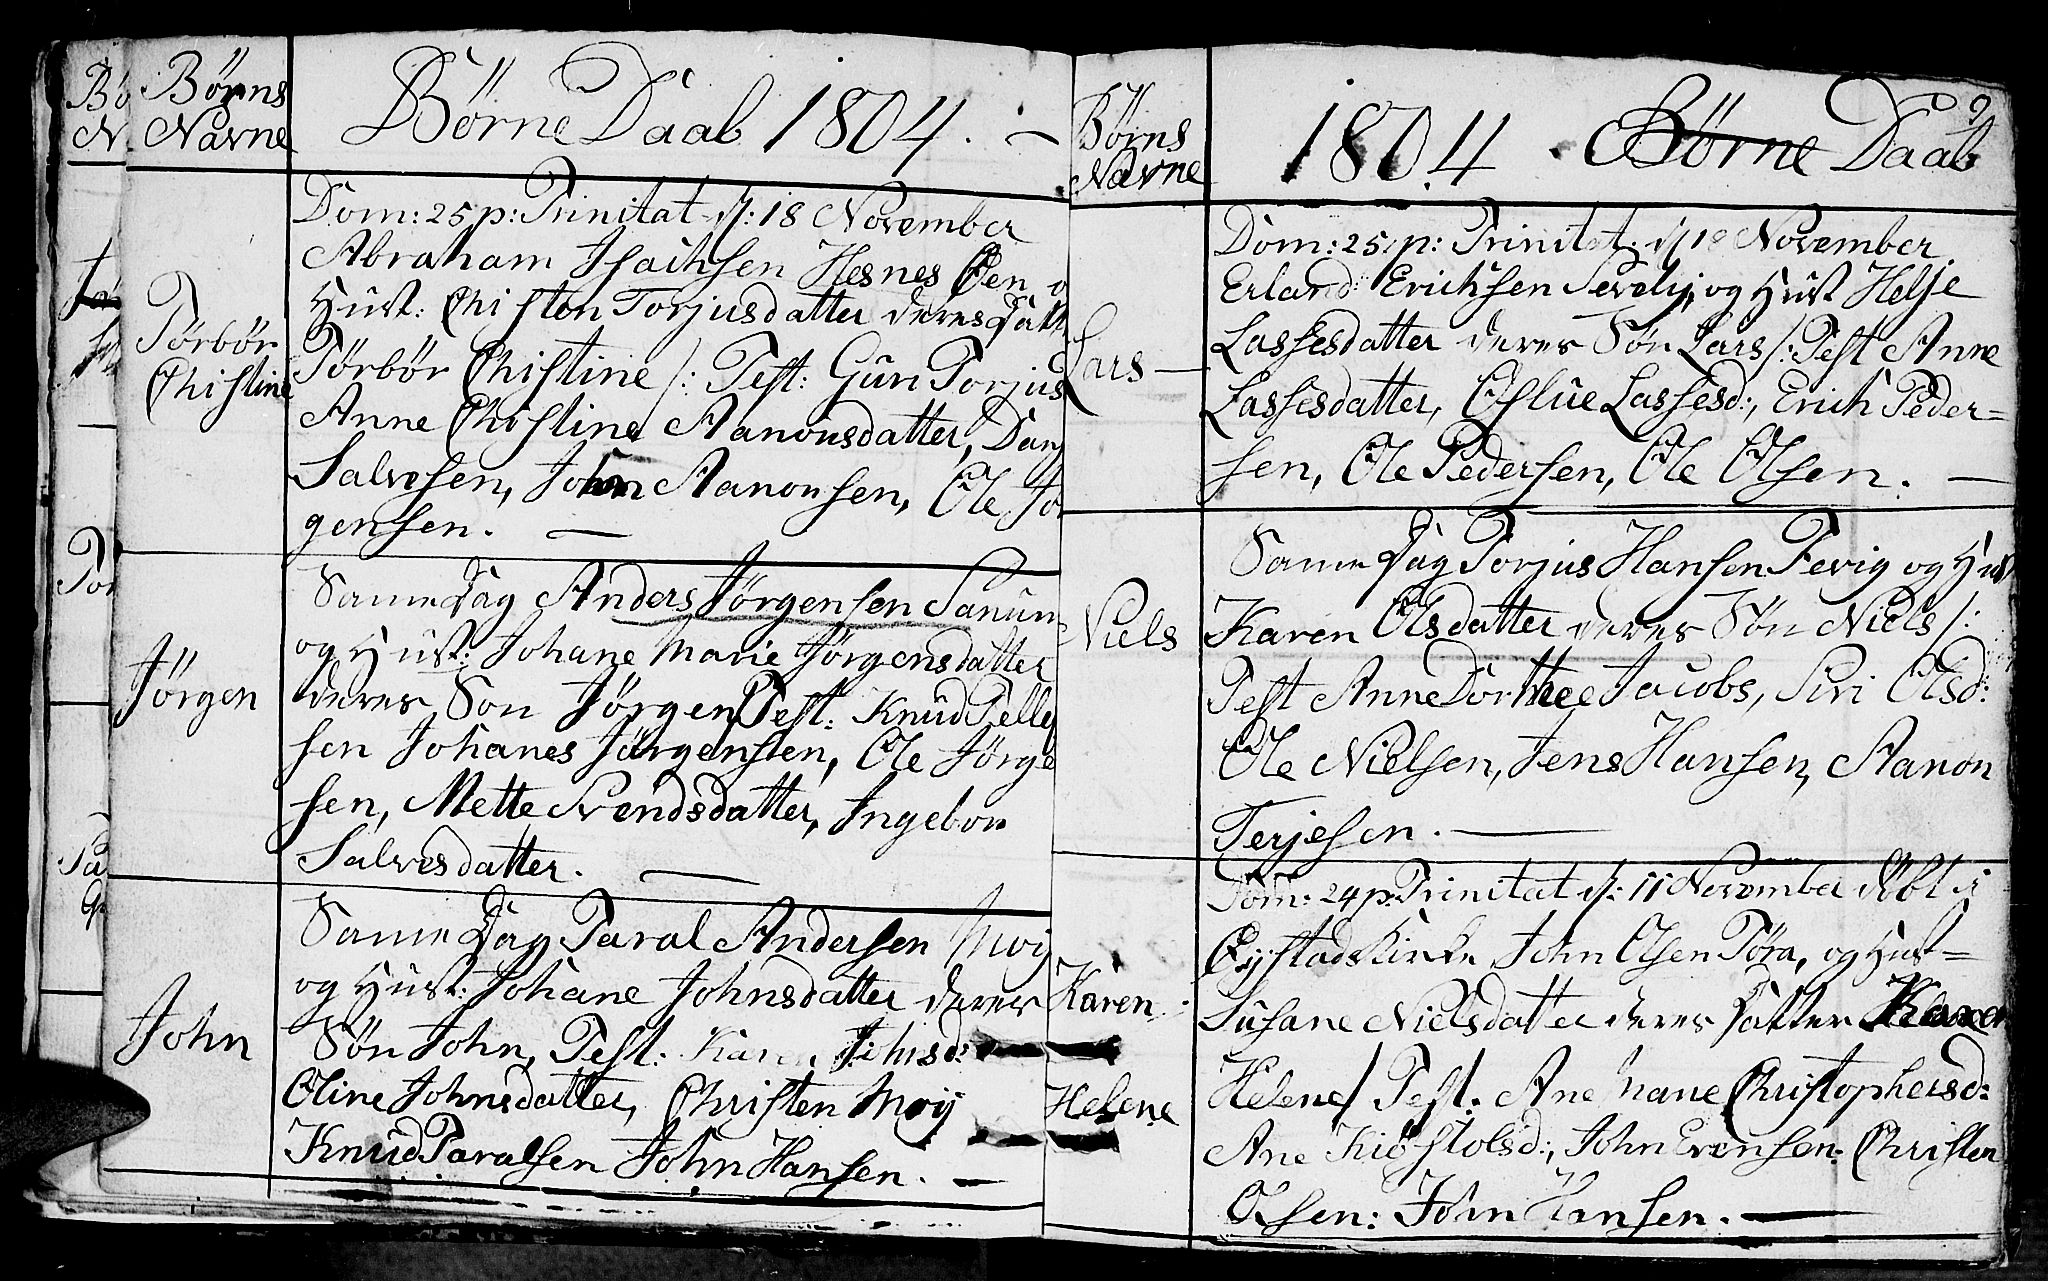 Børns
Navne
Børne Daab 1804.
Dom: 25 p: Trinitat d: 18 November
Abraham Isachsen Hesnes Øen o
Hust: Christen Torjusdatter deres Datt
Tørbør
Christine
Tørbør Christine /: Test: Gun Torjusd
Anne Christine Aanonsdatter, Dan
Salvesen, John Aanonsen, Ole Jør
gensen.
Same Dag Anders Jørgensen Sanum
og Hust: Johane Marie Jørgensdatter
Jørgen
deres Søn Jørgen Test: Knud Telle
sen Johanes Jørgensen, Ole Jørge
sen, Mette Svendsdatter, Ingebor
Salvesdatter.
Same Dag Taral Andersen Moij
og Hust: Johane Johnsdatter deres
John
Søn John, Test: Karen Johnsd:
Oline Johnsdatter, Christen Moij
Knud Taralsen John Hansen.
9
Børns
Navne
1804. Børne Daab
Dom: 25 p: Trinitat: d 18 November
Erland: Erichsen Sevelij, og Hust Helje
Lars
Lassesdatter deres Søn Lars /: Test Anne
Lassesdatter, Aslue Lassesd:, Erich Peder=
sen, Ole Pedersen, Ole Olsen.
Same Dag Torjus Hansen Fevig og Hust
Niels
Karen Olsdatter deres Søn Niels /:
Test Anne Dorthee Jacobs, Siri Olsd:
Ole Nielsen, Jens Hansen, Aanon
Terjesen.
Dom: 24 p: Trinitat d: 11 November døbt i
Øijstads Kirke John Olsen Tøra, og Hust=
Karen
Susane Nielsdatter deres Datter Karen
Helene
Helene / Test: Ane Marie Christophersd:
Ane Kiøstolsd:, John Evensen Christen
Olsen: John Hansen.